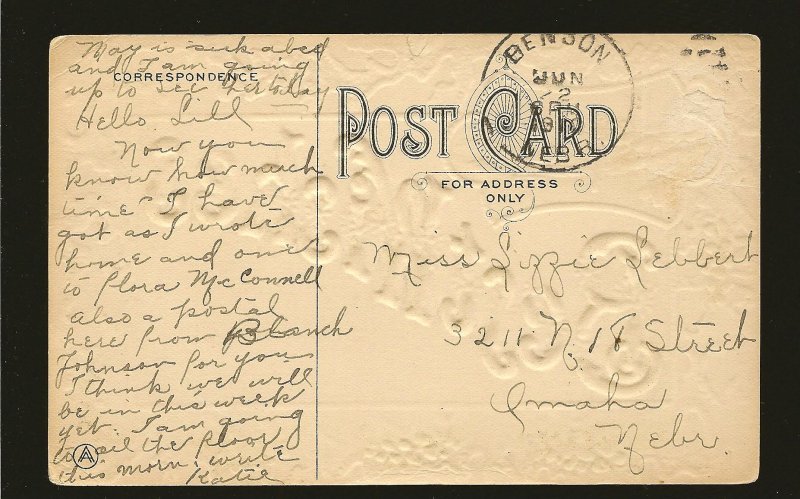 May is sick abed
and I am going
up to see her today
CORRESPONDENCE
Hello Lill
Now you
know how much
time I have
got as I wrote
home and one
to Flora McConnell
also a postal
here from Blanch
Johnson for you
I think we will
be in this week
yet. I am going
to oil the floor
this morn. write
Katie
A
POST CARD
FOR ADDRESS
ONLY
BENSON
JUN
2
NEBR
Miss Lizzie Lebbert
3211 N. 18 Street
Omaha
Nebr.